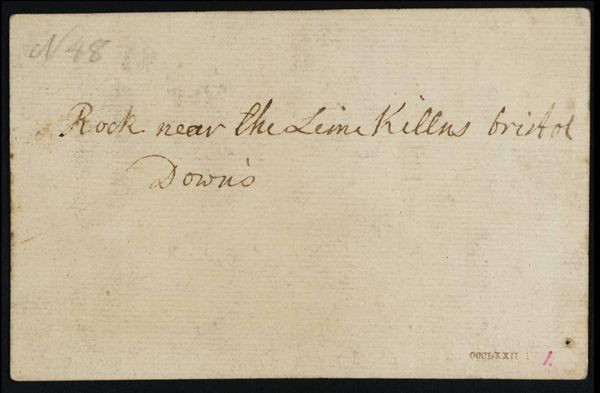 N 48
Rock near the Lime Killns bristol
Down's
CCCLXXII 1.